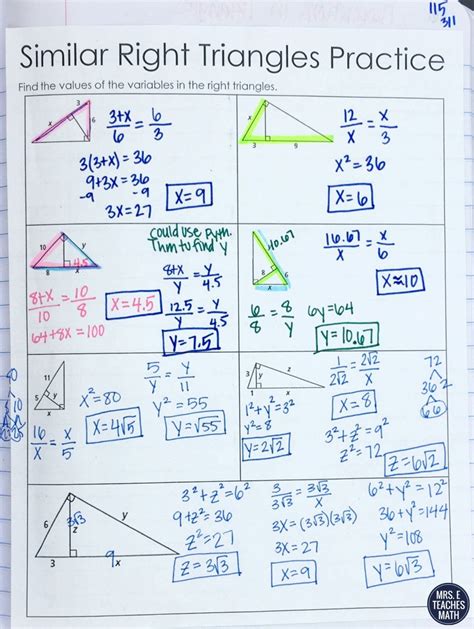 115
311
Similar Right Triangles Practice
Find the values of the variables in the right triangles.
3
x
6
3+x/6 = 6/3
3(3+x) = 36
9+3x = 36
-9 -9
3x = 27
x=9
x
3
9
12/x = x/3
x² = 36
x=6
10
y
8
x
4.5
could use pyth.
Thm to find y
8+x/10 = 10/8
64+8x = 100
x=4.5
8+x/y = y/4.5
12.5/y = y/4.5
y=7.5
10.67
8
6
x
16.67/x = x/6
x≈10
6/8 = 8/y
6y=64
y=10.67
11
5
y
x
16/x = x/5
x²=80
x=4√5
5/y = y/11
y² = 55
y=√55
80
3
y
z
1
x
1²+y²=3²
y²=8
y=2√2
1/2√2 = 2√2/x
x=8
3²+z²=9²
z²=72
z=6√2
72
36 2
6 6
6
3√3
z
y
3
9
x
3²+z²=6²
9+z²=36
z²=27
z=3√3
3/3√3 = 3√3/x
3x=(3√3)(3√3)
3x=27
x=9
6²+y²=12²
36+y²=144
y²=108
y=6√3
MRS. E
TEACHES
MATH